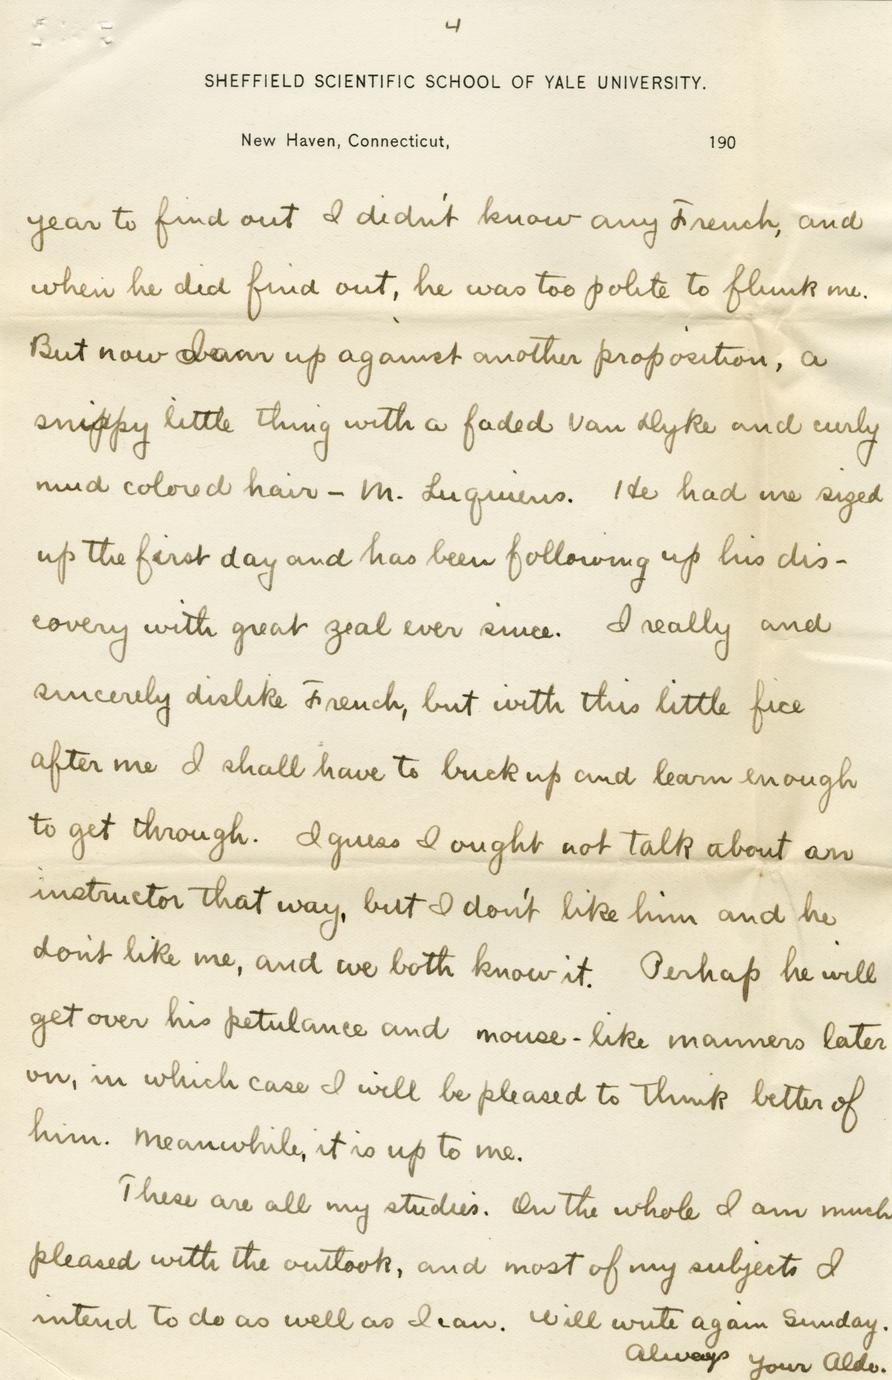 4
SHEFFIELD SCIENTIFIC SCHOOL OF YALE UNIVERSITY.
New Haven, Connecticut, 190
year to find out I didn't know any French, and
when he did find out, he was too polite to flunk me.
But now I am up against another proposition, a
snippy little thing with a faded Van Dyke and curly
mud colored hair – M. Luquiens. He had me sized
up the first day and has been following up his dis-
covery with great zeal ever since. I really and
sincerely dislike French, but with this little fice
after me I shall have to buck up and learn enough
to get through. I guess I ought not talk about an
instructor that way, but I don't like him and he
don't like me, and we both know it. Perhap he will
get over his petulance and mouse-like manners later
on, in which case I will be pleased to think better of
him. Meanwhile, it is up to me.
These are all my studies. On the whole I am much
pleased with the outlook, and most of my subjects I
intend to do as well as I can. Will write again Sunday.
Always your Aldo.